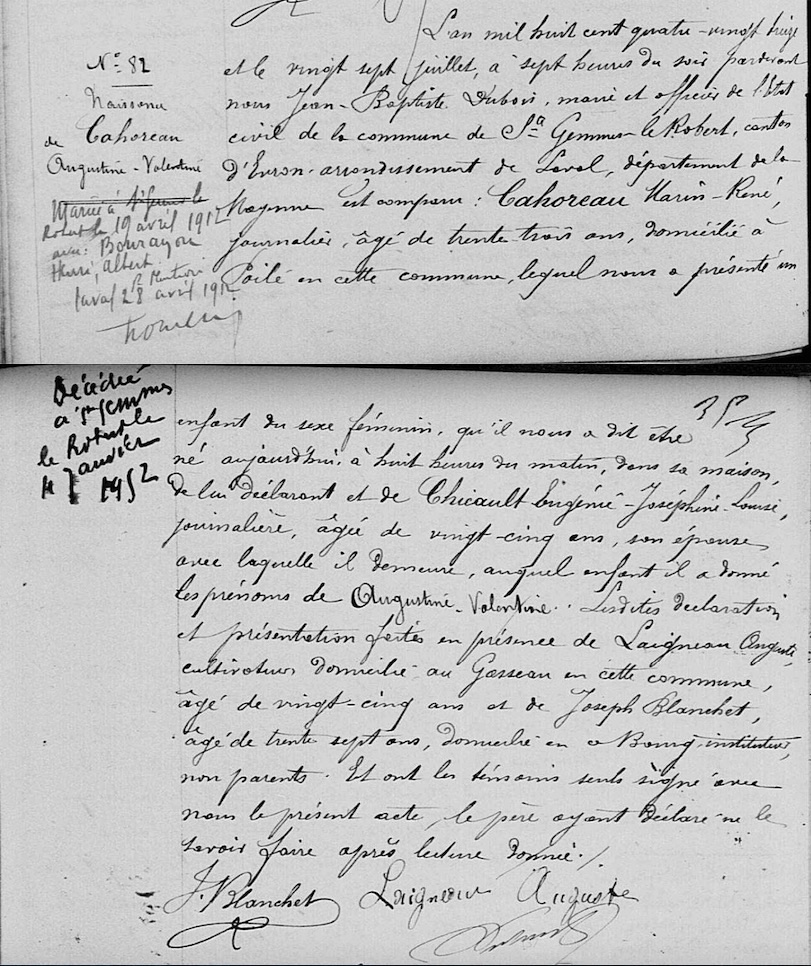 L'an mil huit cent quatre-vingt treize
N° 82
Naissance
de Cahoreau
Augustine-Valentine
Mariée à Ste Gemmes le
Robert le 19 avril 1912
avec: Bourayou
Henri, Albert.
Laval 28 avril 1912
et le vingt sept juillet, à sept heures du soir pardevant
nous Jean-Baptiste Dubois, maire et officier de l'Etat
civil de la commune de Ste Gemmes-le Robert, canton
d'Evron arrondissement de Laval, département de la
Mayenne est comparu : Cahoreau Marin-René,
journalier, âgé de trente trois ans, domicilié à
en cette commune, lequel nous a présenté un
Décédée
à Ste Gemmes
le Robert le
4 Janvier
1952
enfant du sexe féminin, qu'il nous a dit être
né aujourd'hui, à huit heures du matin, dans sa maison,
de lui déclarant et de Chicault Eugénie-Joséphine-Louise,
journalière, âgée de vingt-cinq ans, son épouse
avec laquelle il demeure, auquel enfant il a donné
les prénoms de Augustine-Valentine. Lesdites déclaration
et présentation faites en présence de Laigneau Auguste,
cultivateur domicilié au Gasseau en cette commune,
âgé de vingt-cinq ans et de Joseph Blanchet,
âgé de trente sept ans, domicilié en ce Bourg instituteur,
non parents. Et ont les témoins seuls signé avec
nous le présent acte, le père ayant déclaré ne le
savoir faire après lecture donnée./.
J. Blanchet Laigneau Auguste